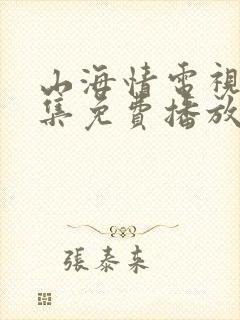 山海情電視
集免費播放
張泰來